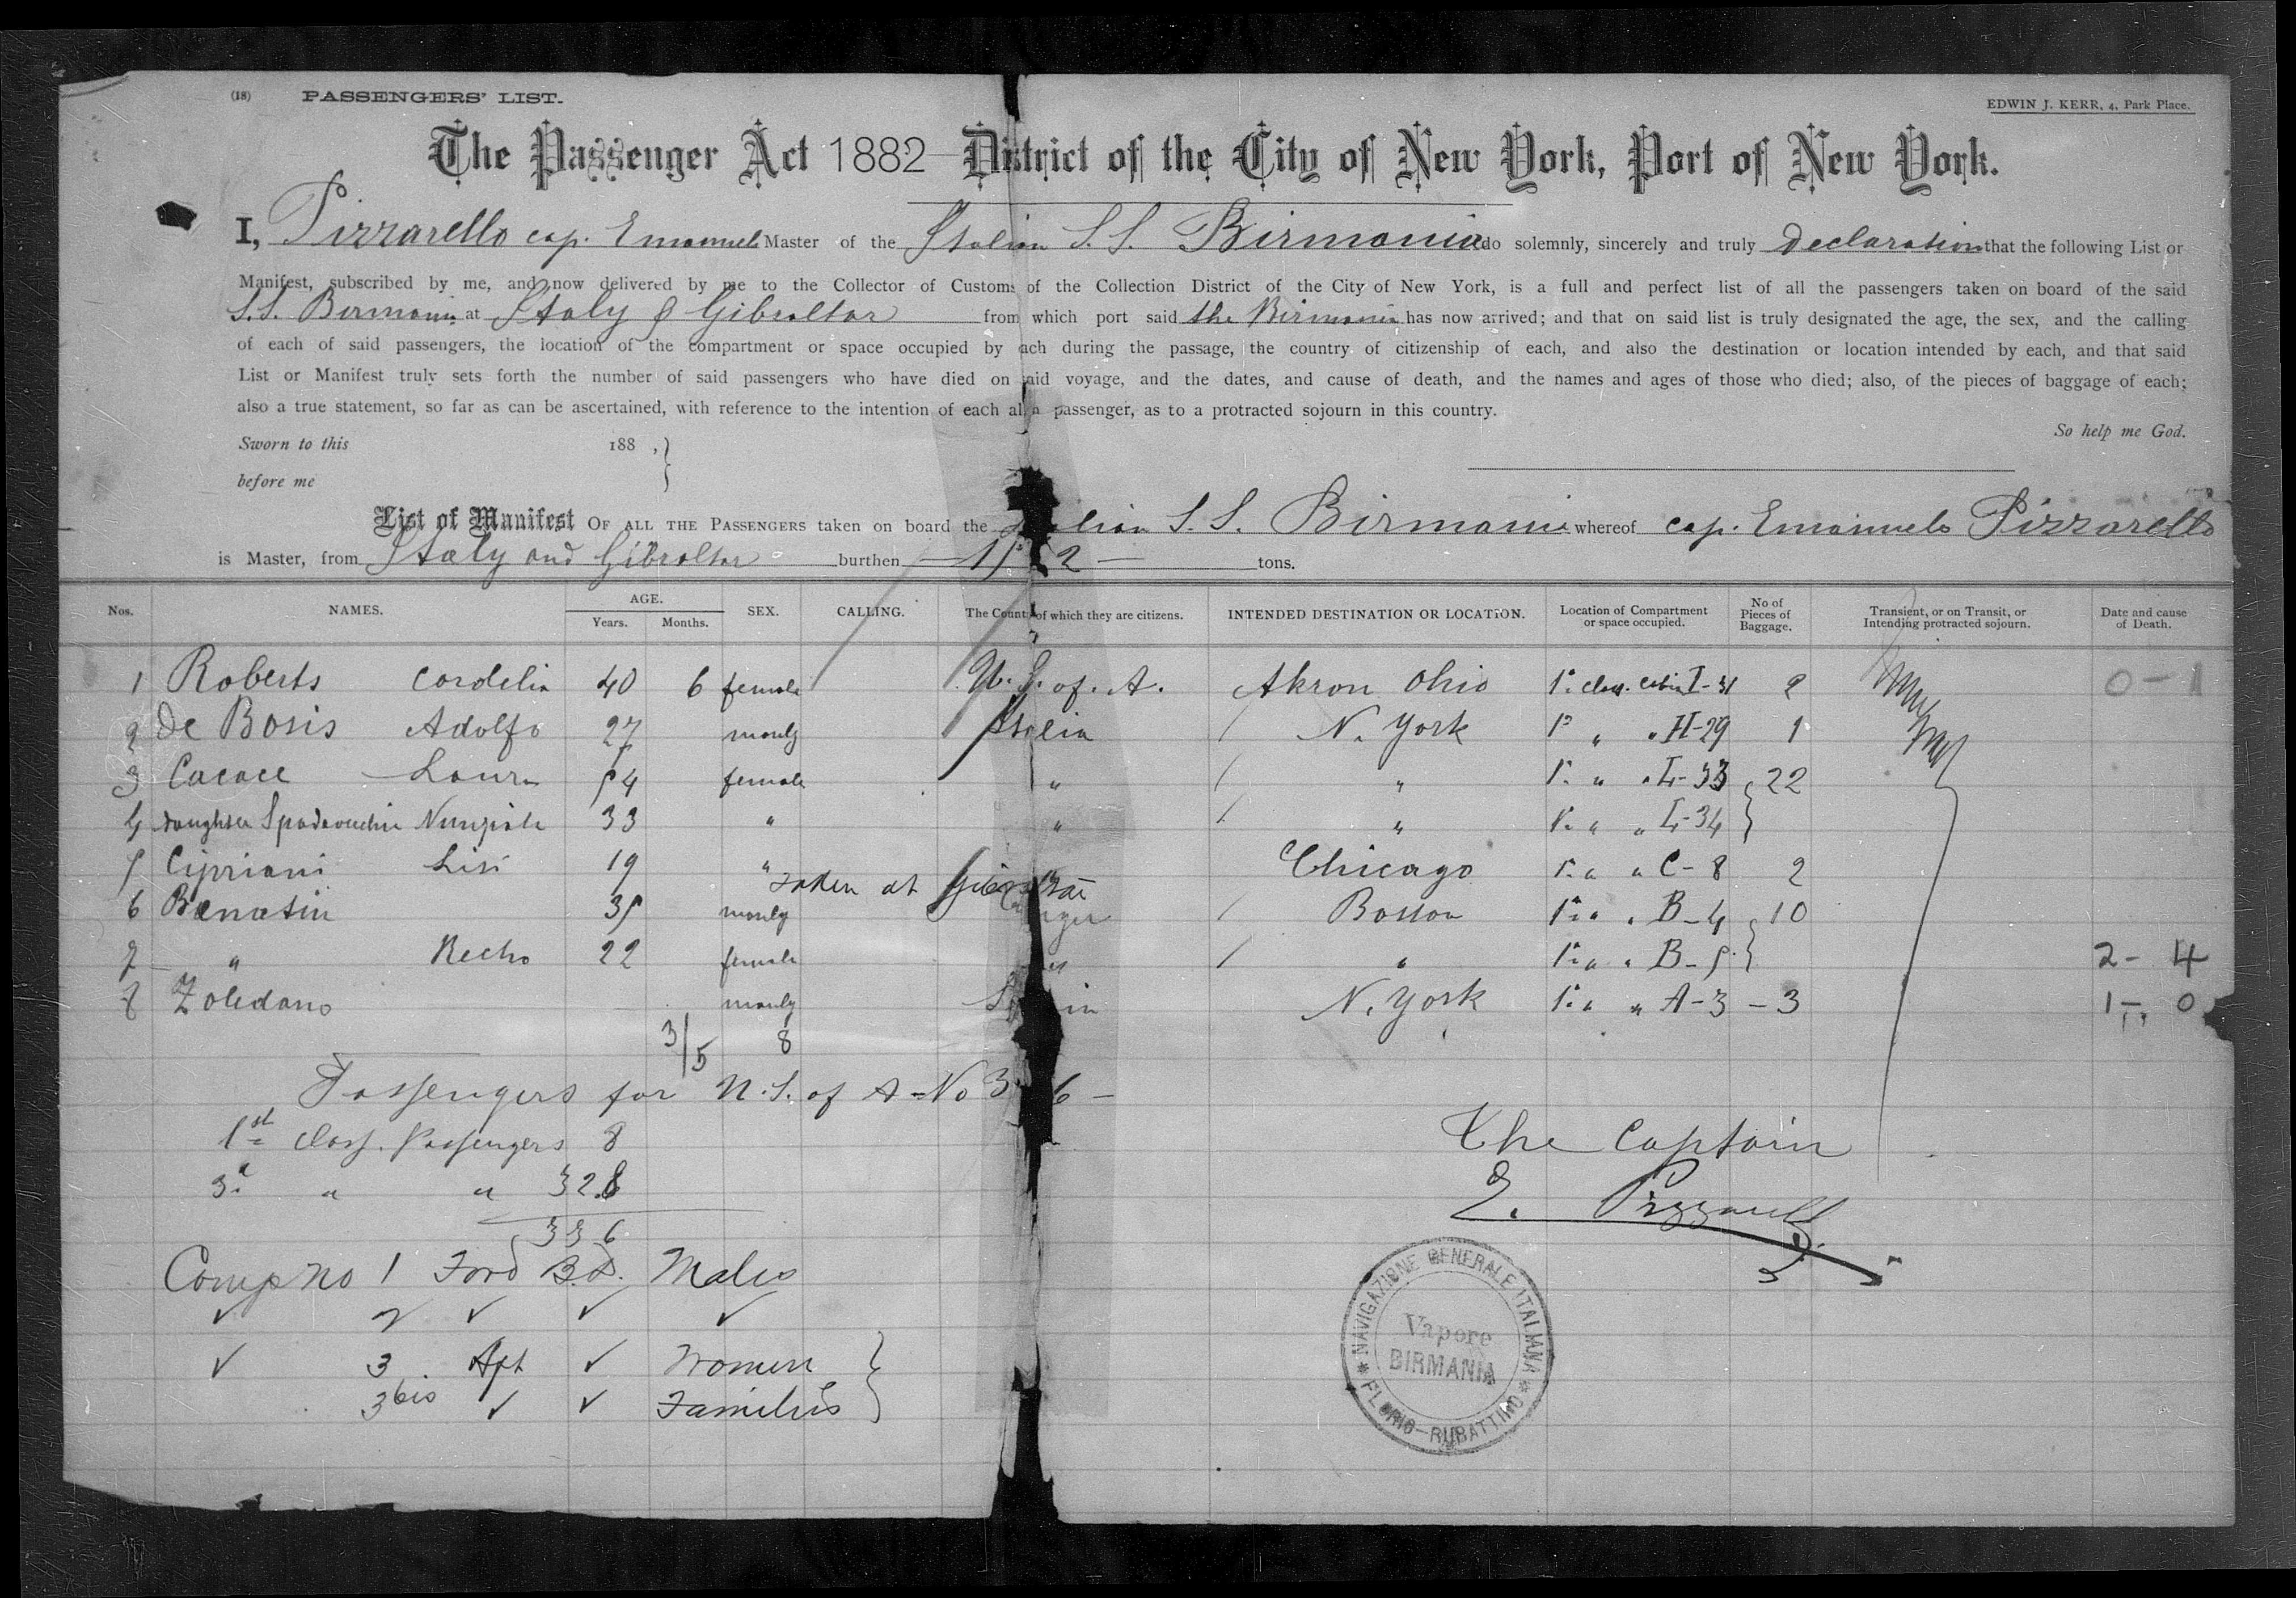 (18) PASSENGERS' LIST. EDWIN J. KERR, 4, Park Place.
The Passenger Act 1882 District of the City of New York, Port of New York.
I, Pizzarello cap. Emanuele Master of the Italian S.S. Birmania do solemnly, sincerely and truly Declaration that the following List or
Manifest, subscribed by me, and now delivered by me to the Collector of Customs of the Collection District of the City of New York, is a full and perfect list of all the passengers taken on board of the said
S.S. Birmania at Italy & Gibraltar from which port said the Birmania has now arrived; and that on said list is truly designated the age, the sex, and the calling
of each of said passengers, the location of the compartment or space occupied by ach during the passage, the country of citizenship of each, and also the destination or location intended by each, and that said
List or Manifest truly sets forth the number of said passengers who have died on aid voyage, and the dates, and cause of death, and the names and ages of those who died; also, of the pieces of baggage of each;
also a true statement, so far as can be ascertained, with reference to the intention of each alien passenger, as to a protracted sojourn in this country.
So help me God.
Sworn to this 188 ,
before me
List of Manifest OF ALL THE PASSENGERS taken on board the Italian S.S. Birmania whereof cap. Emanuele Pizzarello
is Master, from Italy and Gibraltar burthen 2 tons.
Nos. NAMES. AGE. Years. Months. SEX. CALLING. The Country of which they are citizens. INTENDED DESTINATION OR LOCATION. Location of Compartment or space occupied. No of Pieces of Baggage. Transient, or on Transit, or Intending protracted sojourn. Date and cause of Death.
1 Roberts Cordelia 40 6 female U.S. of. A. Akron Ohio 1ª class. cabin I-31 2 0-1
2 De Bosis Adolfo 27 manly Italia N. York 1ª " " H-29 1
3 Cacace Laura 54 female " " 1ª " " L-33 22
4 daughter Spadavecchia Nunziata 33 " " " 1ª " " L-34
5 Cipriani Lisi 19 " Chicago 1ª " " C-8 2
taken at Gibraltar
6 Benatin 35 manly Boston 1ª " " B-4 10
7 " Recho 22 female " " 1ª " " B-5 2- 4
8 Zoledano manly Spain N. York 1ª " " A-3 - 3 1- 0
3/5 8
Passengers for U.S. of A = No 3 6 -
1st Class. Passengers 8
3ª " " 328
336
The Captain
E. Pizzarello
Comp no 1 Ford B.D. Males
✓ 2 ✓ ✓ ✓
✓ 3 Aft ✓ Women
3 bis ✓ ✓ Families
NAVIGAZIONE GENERALE ITALIANA
Vapore
BIRMANIA
FLORIO-RUBATTINO